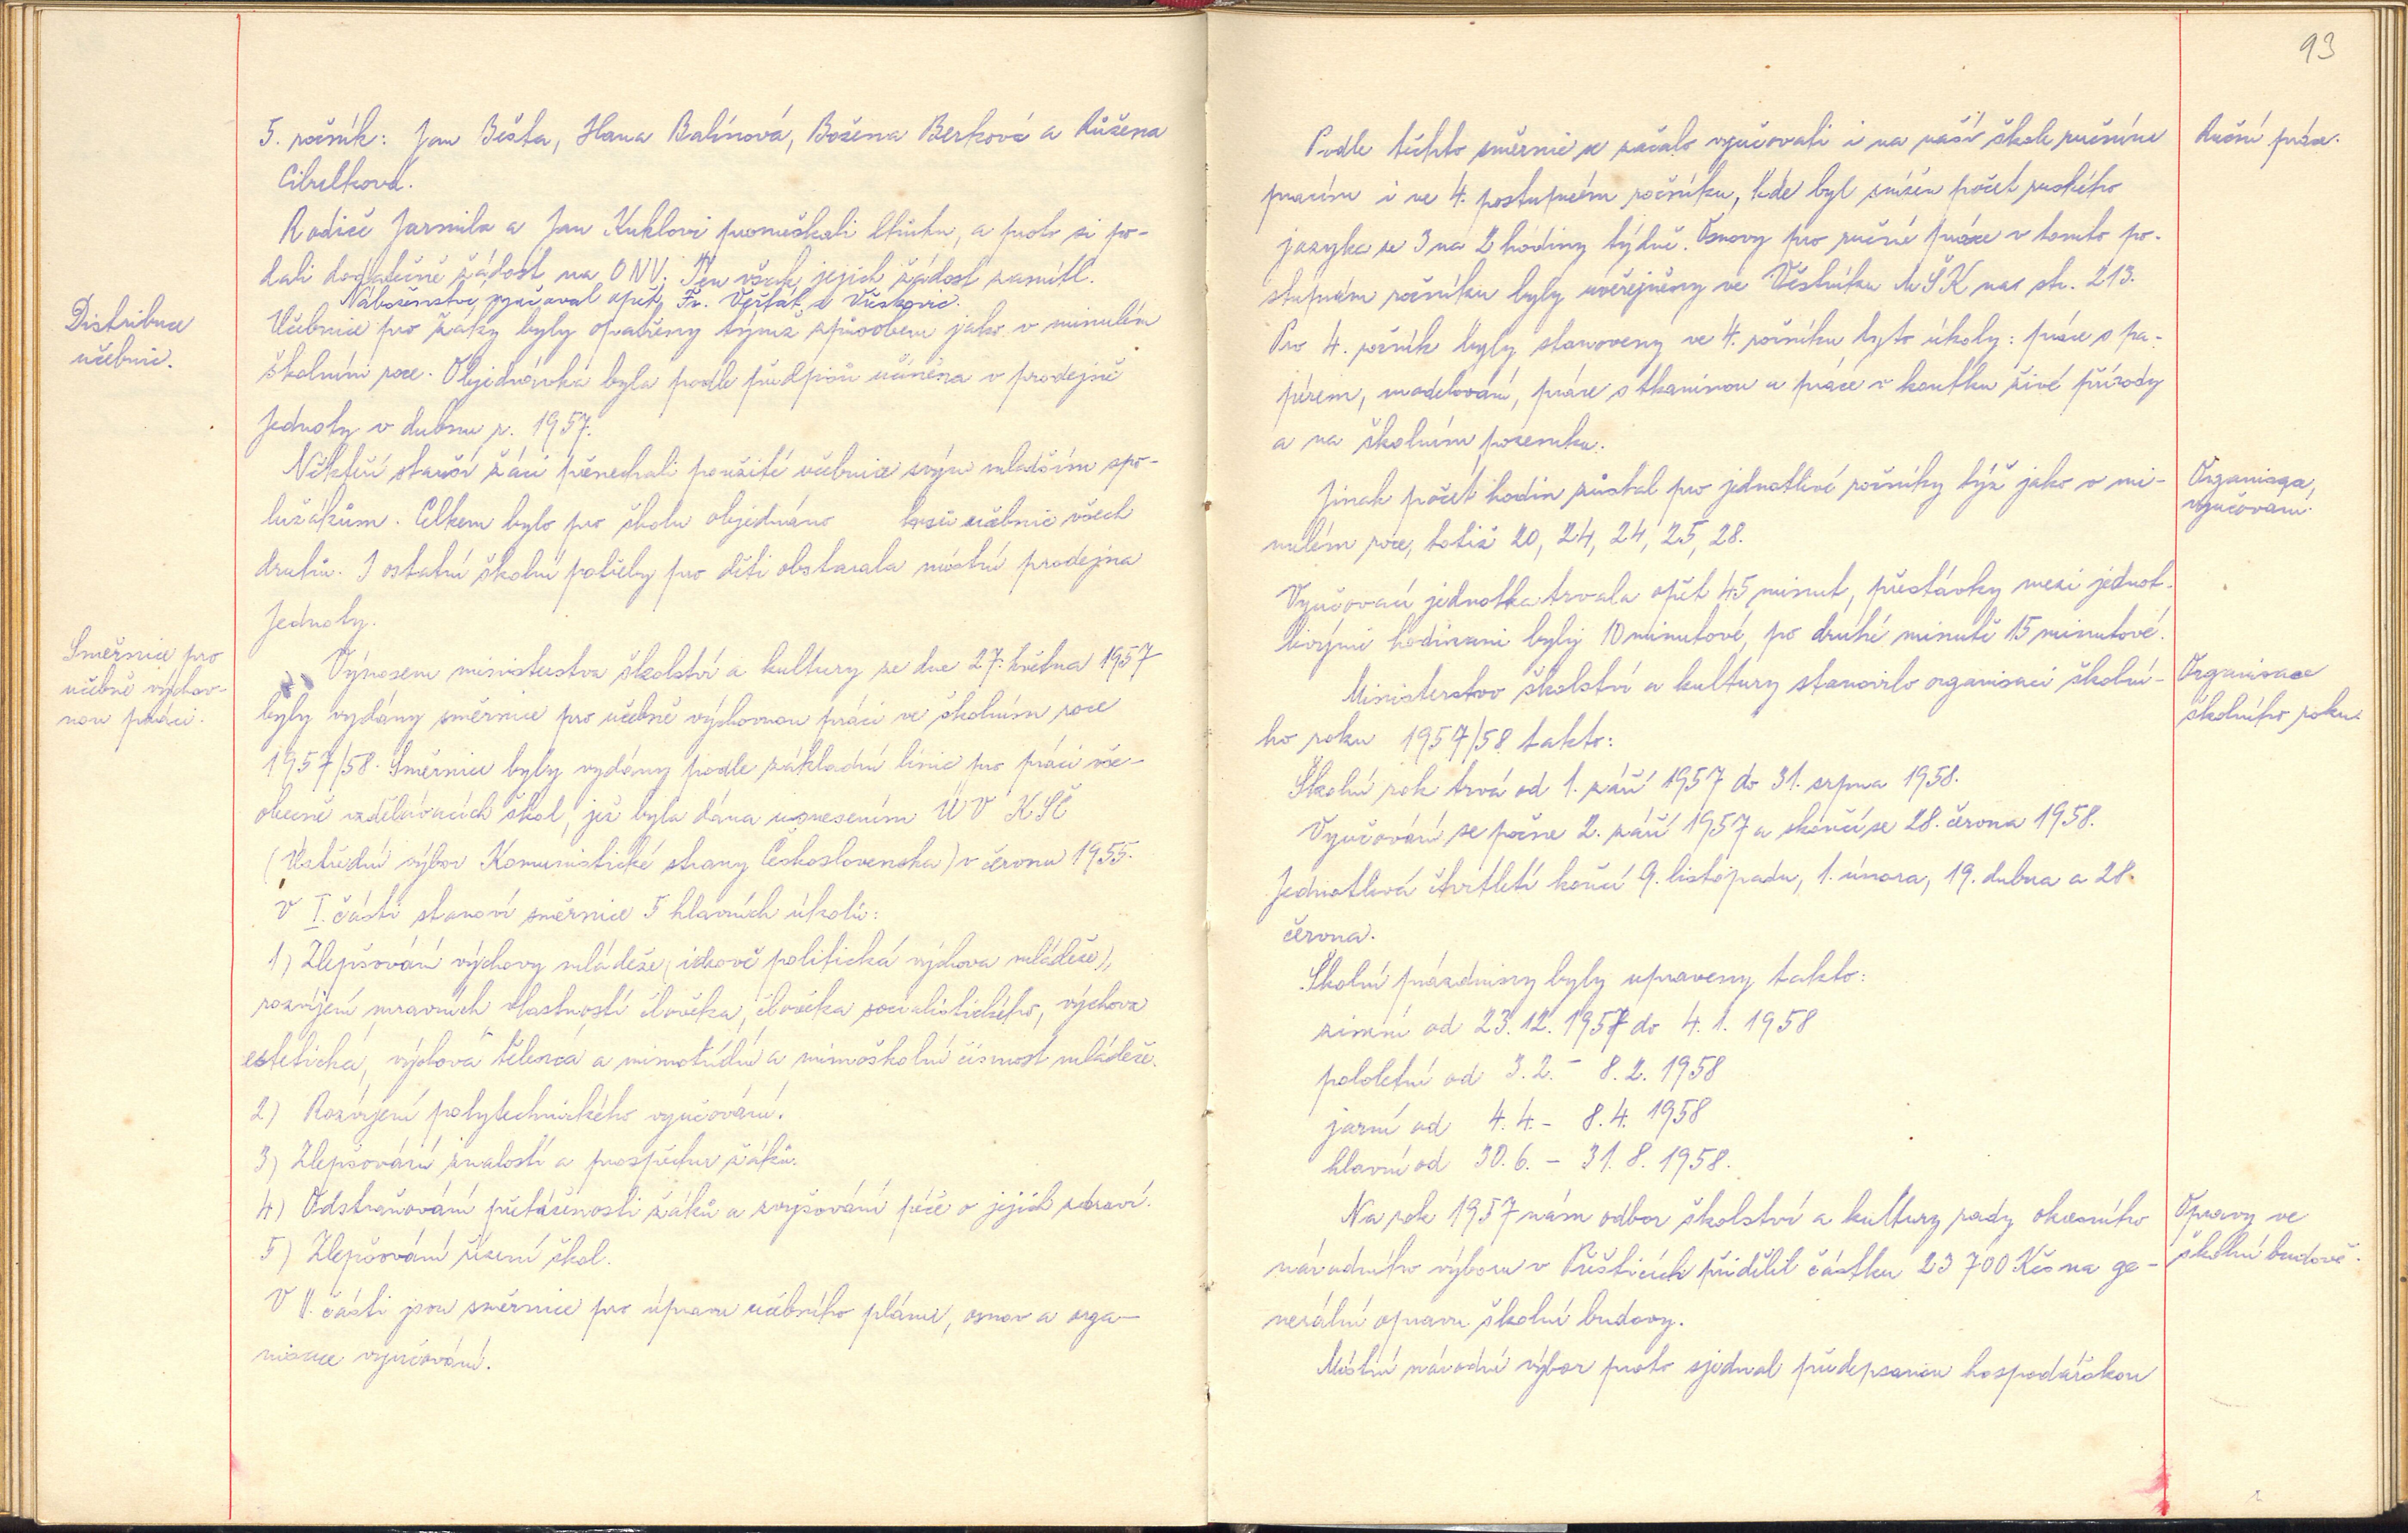 5. ročník: Jan Bešta, Hana Balínová, Božena Berková a Růžena
Cibulková.
Rodiče Jarmila a Jan Kuklovi promeškali lhůtu, a proto si po-
dali dodatečně žádost na ONV. Ten však jejich žádost zamítl.
Náboženství vyučoval opět Fr. Veřtát z Vůskovic.
Distribuce
učebnic.
Učebnice pro žáky byly opatřeny týmž způsobem jako v minulém
školním roce. Objednávka byla podle předpisů učiněna v prodejně
Jednoty v dubnu r. 1957.
Někteří starší žáci přenechali použité učebnice svým mladším spo-
lužákům. Celkem bylo pro školu objednáno kusů učebnic všech
druhů. I ostatní školní potřeby pro děti obstarala místní prodejna
Jednoty.
Směrnice pro
učebně výchov-
nou práci.
Výnosem ministerstva školství a kultury ze dne 27. května 1957
byly vydány směrnice pro učebně výchovnou práci ve školním roce
1957/58. Směrnice byly vydány podle základní linie pro práci vše-
obecně vzdělávacích škol, jež byla dána usnesením ÚV KSČ
(Ústřední výbor Komunistické strany Československa) v červnu 1955.
V I. části stanoví směrnice 5 hlavních úkolů:
1) Zlepšování výchovy mládeže (ideově politická výchova mládeže),
rozvíjení mravních vlastností člověka, člověka socialistického, výchova
estetická, výchova tělesná a mimotřídní a mimoškolní činnost mládeže.
2) Rozvíjení polytechnického vyučování.
3) Zlepšování znalostí a prospěchu žáků.
4) Odstraňování přetíženosti žáků a zvyšování péče o jejich zdraví.
5) Zlepšování řízení škol.
V II. části jsou směrnice pro úpravu učebního plánu, osnov a orga-
nisace vyučování.
93
Ruční práce.
Podle těchto směrnic se začalo vyučovati i na naší škole ručním
pracím i ve 4. postupném ročníku, kde byl snížen počet ruského
jazyka ze 3 na 2 hodiny týdně. Osnovy pro ruční práce v tomto po-
stupném ročníku byly uveřejněny ve Věstníku MŠK na str. 213.
Pro 4. ročník byly stanoveny ve 4. ročníku tyto úkoly: práce s pa-
pírem, modelování, práce s tkaninou a práce v koutku živé přírody
a na školním pozemku.
Organisace
vyučování.
Jinak počet hodin zůstal pro jednotlivé ročníky týž jako v mi-
nulém roce, totiž 20, 24, 24, 25, 28.
Vyučovací jednotka trvala opět 45 minut, přestávky mezi jednot-
livými hodinami byly 10 minutové, po druhé minutě 15 minutové.
Organisace
školního roku.
Ministerstvo školství a kultury stanovilo organisaci školní-
ho roku 1957/58 takto:
Školní rok trvá od 1. září 1957 do 31. srpna 1958.
Vyučování se počne 2. září 1957 a skončí se 28. června 1958.
Jednotlivá čtvrtletí končí 9. listopadu, 1. února, 19. dubna a 28.
června.
Školní prázdniny byly upraveny takto:
zimní od 23. 12. 1957 do 4. 1. 1958
pololetní od 3. 2. - 8. 2. 1958
jarní od 4. 4. - 8. 4. 1958
hlavní od 30. 6. - 31. 8. 1958.
Opravy ve
školní budově.
Na rok 1957 nám odbor školství a kultury rady okresního
národního výboru v Přešticích přidělil částku 23 700 Kčs na ge-
nerální opravu školní budovy.
Místní národní výbor proto sjednal předepsanou hospodářskou